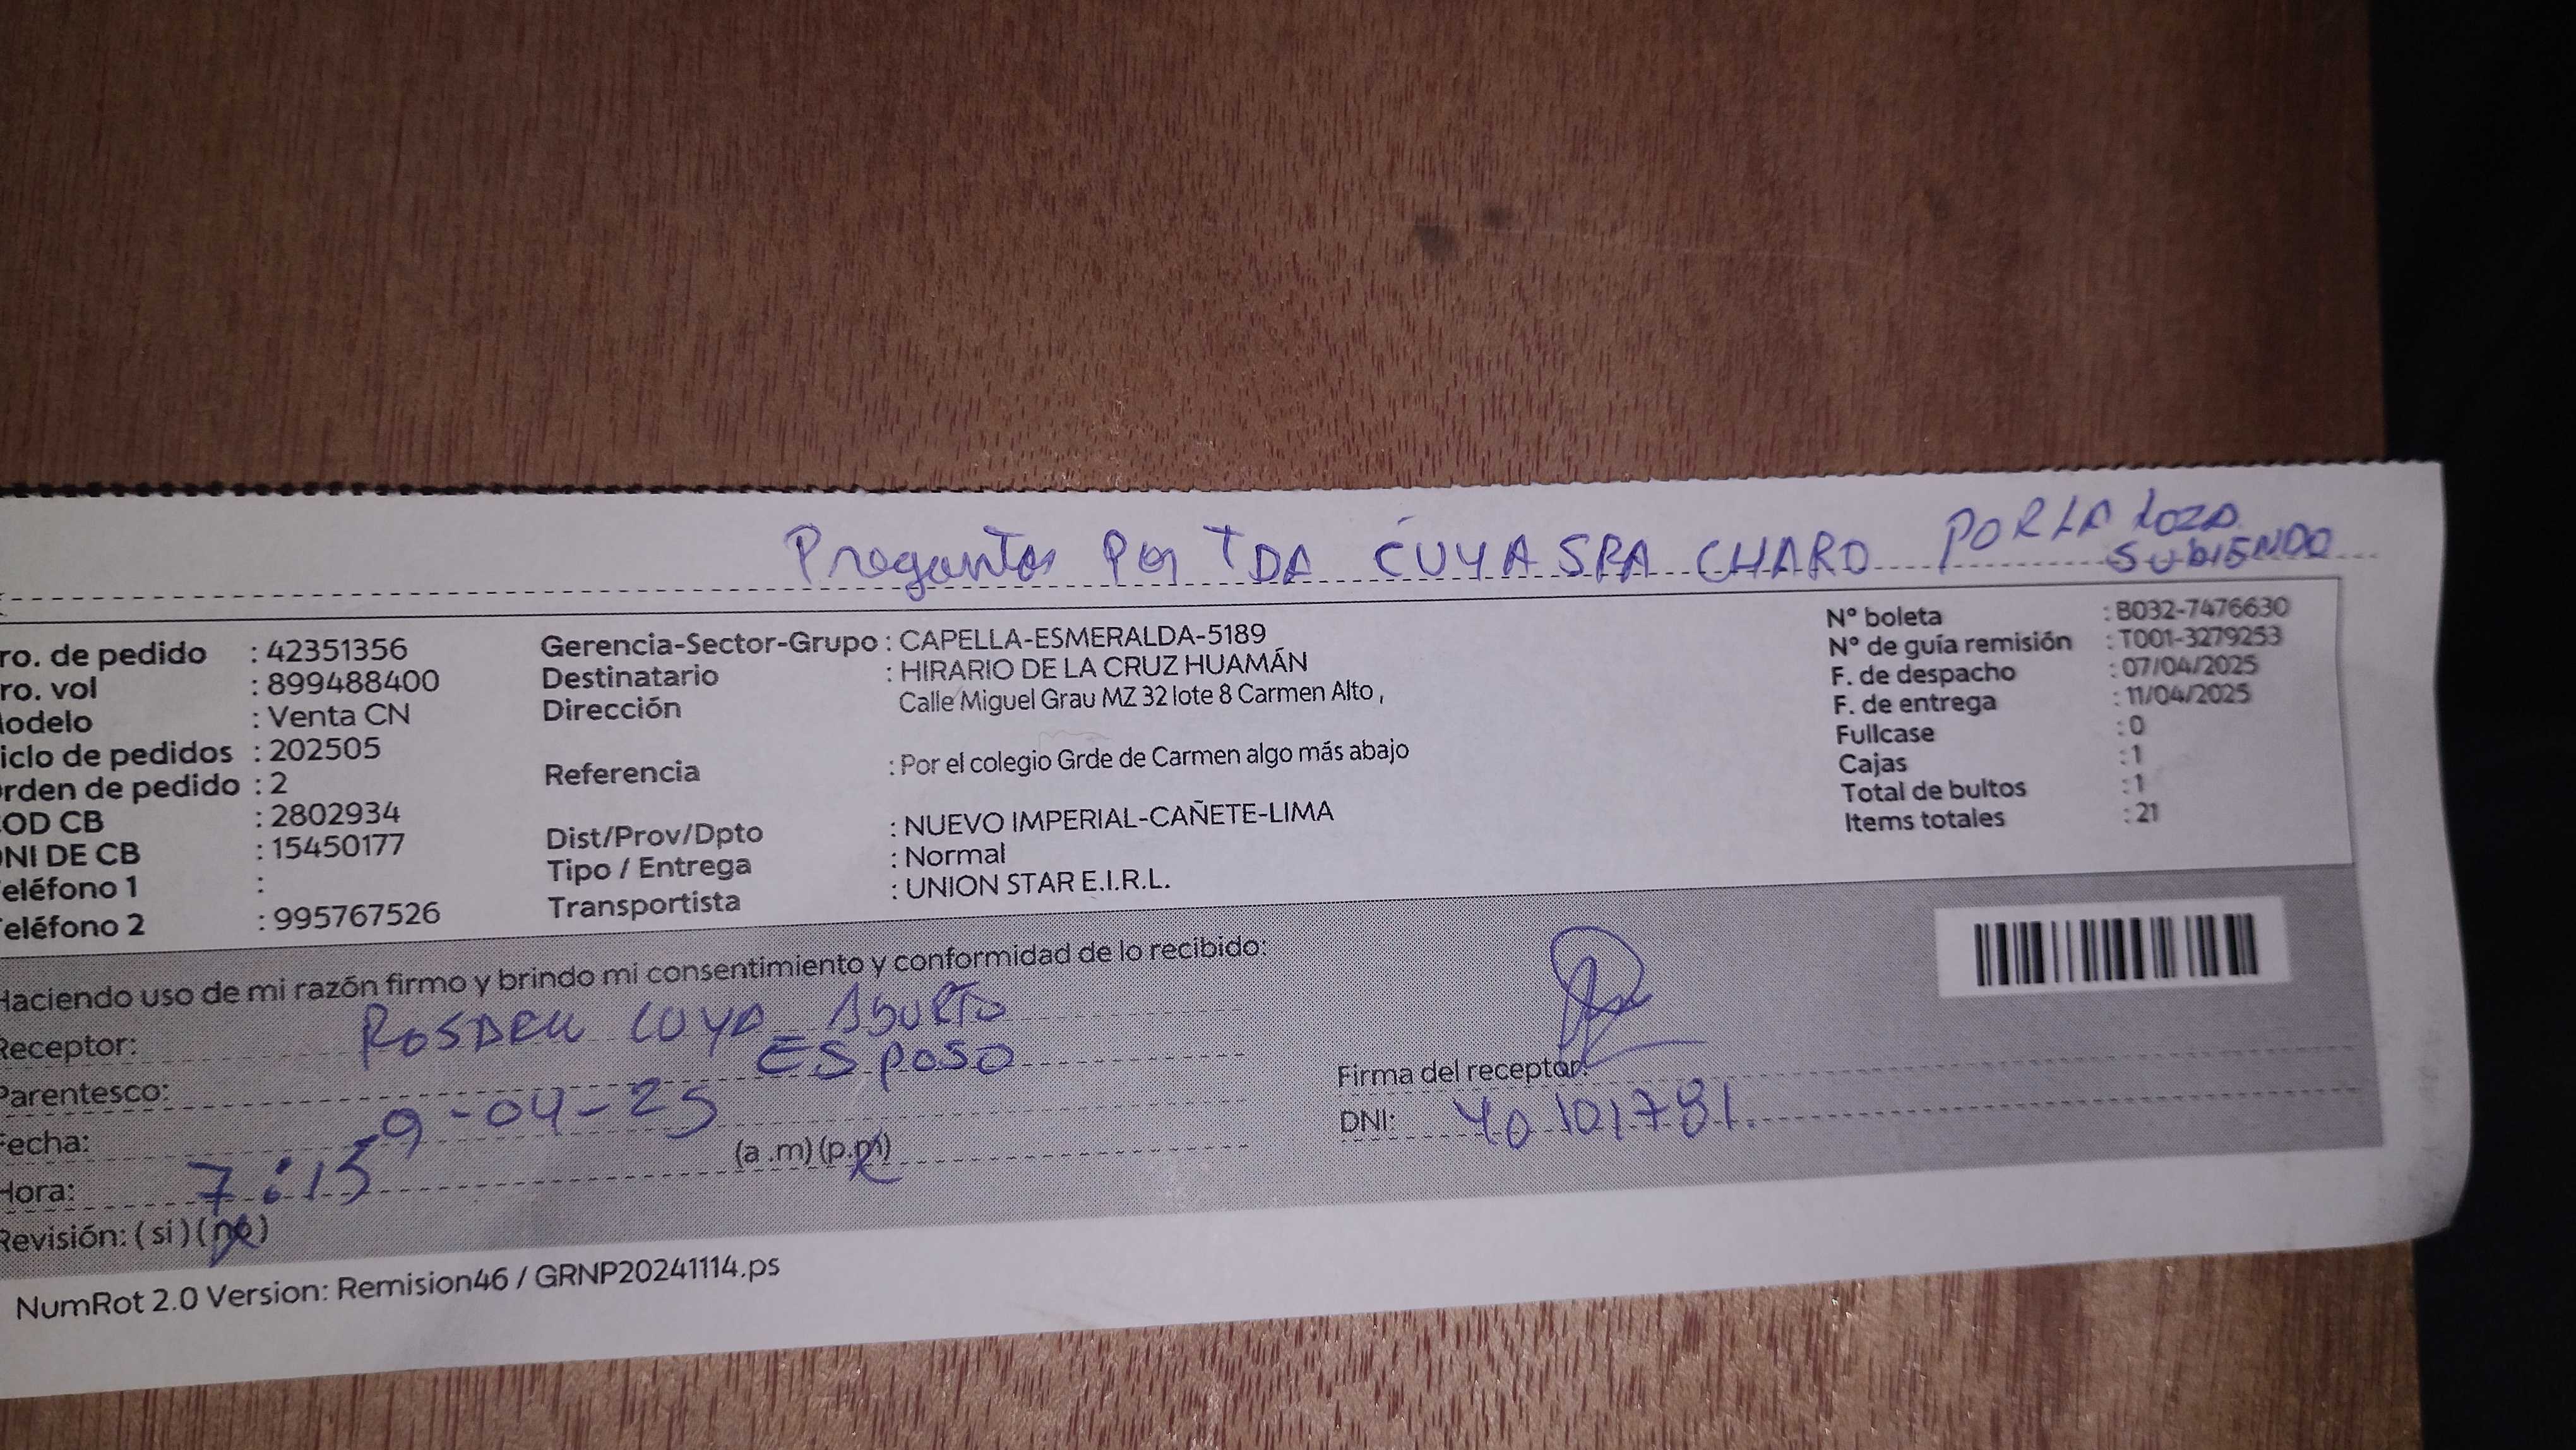 Preguntar por TDA CUYA SRA CHARO POR LA LOZA
SUBIENDO
ro. de pedido : 42351356
ro. vol : 899488400
odelo : Venta CN
iclo de pedidos : 202505
rden de pedido : 2
OD CB : 2802934
NI DE CB : 15450177
eléfono 1 :
eléfono 2 : 995767526
Gerencia-Sector-Grupo : CAPELLA-ESMERALDA-5189
Destinatario : HIRARIO DE LA CRUZ HUAMÁN
Dirección Calle Miguel Grau MZ 32 lote 8 Carmen Alto ,
Referencia : Por el colegio Grde de Carmen algo más abajo
Dist/Prov/Dpto : NUEVO IMPERIAL-CAÑETE-LIMA
Tipo / Entrega : Normal
Transportista : UNION STAR E.I.R.L.
Nº boleta : B032-7476630
Nº de guía remisión : T001-3279253
F. de despacho : 07/04/2025
F. de entrega : 11/04/2025
Fullcase : 0
Cajas : 1
Total de bultos : 1
Items totales : 21
Haciendo uso de mi razón firmo y brindo mi consentimiento y conformidad de lo recibido:
Receptor: CUYA ABURTO
Parentesco: ESPOSO
Fecha: 9-04-25
Hora: 7:15 (a .m) (p.m)
Revisión: ( si ) ( no )
Firma del receptor:
DNI: 40101781.
NumRot 2.0 Version: Remision46 / GRNP20241114.ps